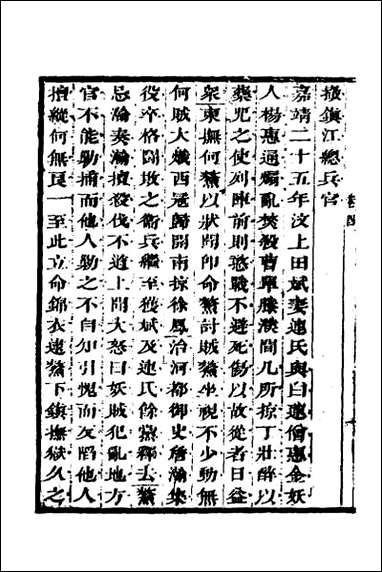 撤鎮江總兵官
嘉靖二十五年汶上田斌妻連氏與白蓮僧惠金妖
人楊惠通煽亂焚殺曹單滕滨間凡所掠丁壯醉以
藥咒之使列陣前則憨戰不避死傷以故從者日益
衆東撫何鰲以狀聞即命鰲討賊鰲坐視不少動無
何賊大熾西寇歸開南掠徐鳳治河都御史詹瀚集
役卒格鬭敗之衛兵繼至獲斌及連氏餘黨釋去鰲
忌瀚奏瀚擅殺伐不道上聞大怒曰妖賊犯亂地方
官不能勦捕而他人勦之不自知引愧而反陷他人
擅縱何無良一至此立命錦衣逮鰲下鎮撫獄久之